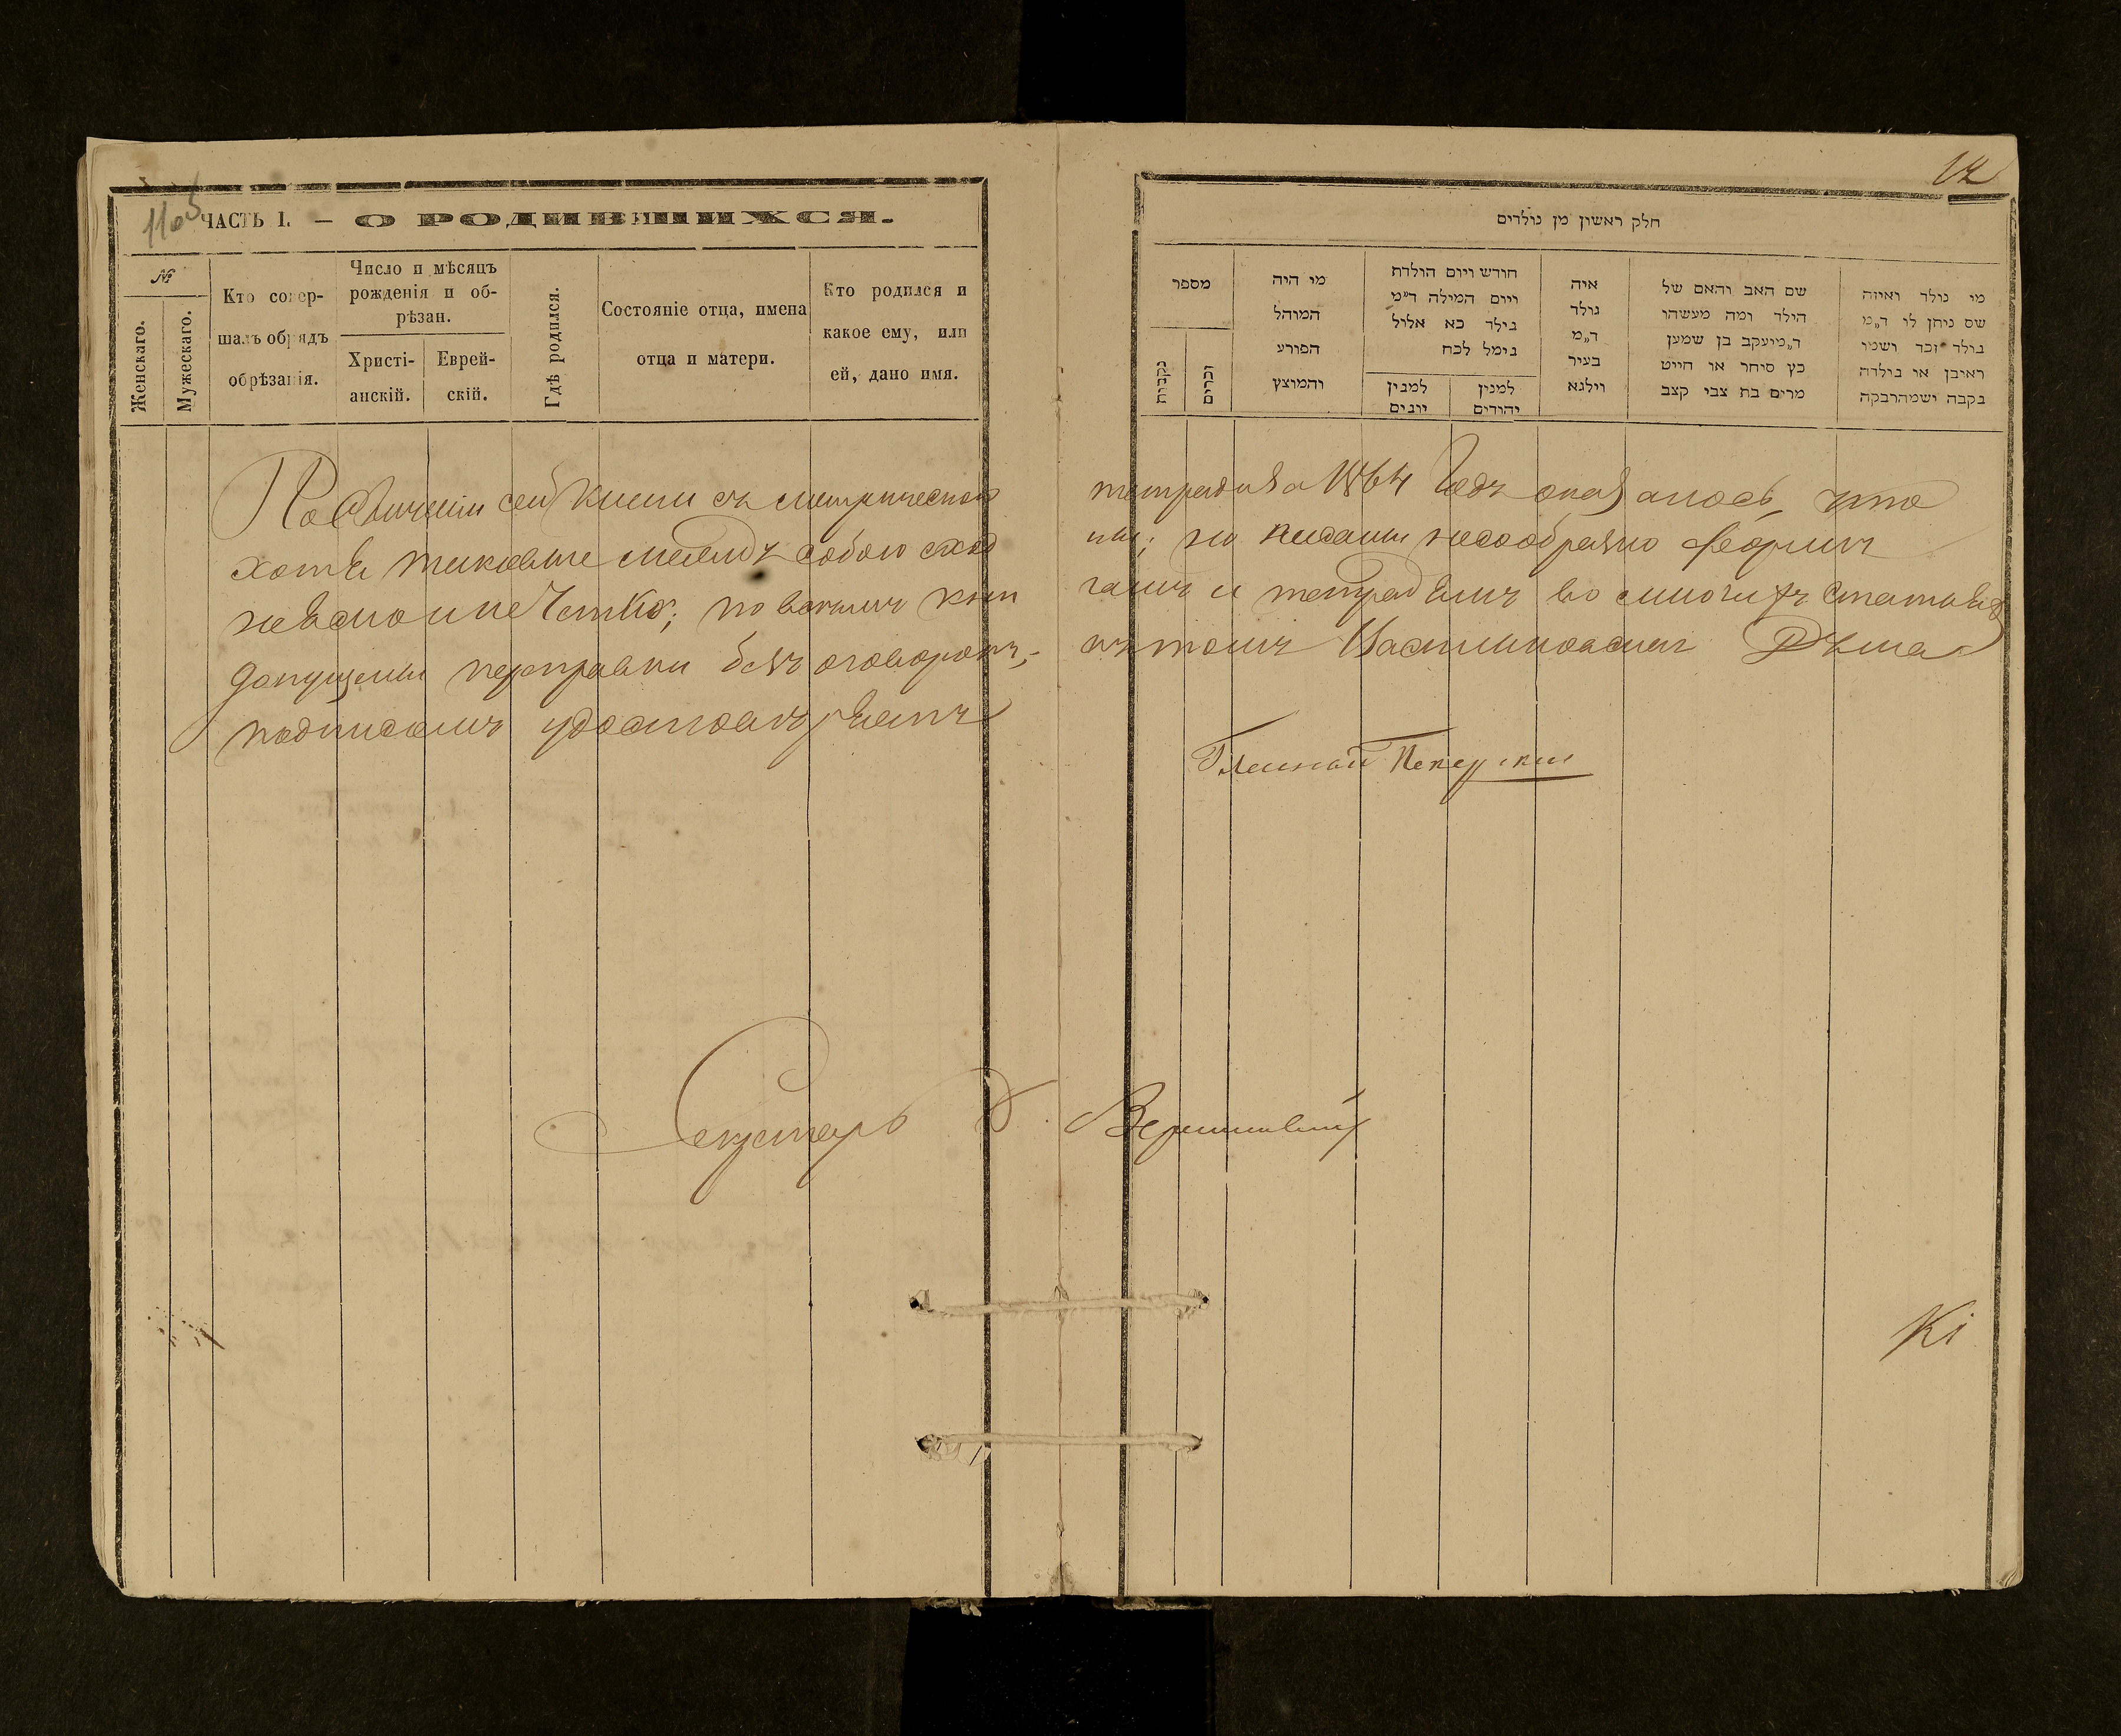 1105
ЧАСТЬ I. — О РОДИВШИХСЯ.
№
Женскаго.
Мужескаго.
Кто совер-
шалъ обрядъ
обрѣзанія.
Число и мѣсяцъ
рожденія и об-
рѣзан.
Христі-
анскій.
Еврей-
скій.
Гдѣ родился.
Состояніе отца, имена
отца и матери.
Кто родился и
какое ему, или
ей, дано имя.
По сличеніи сей книги съ метрическою
хотя таковыя между собою сход
неясно и не четко; по всѣмъ кни
допущены переправки безъ оговорокъ,
подписомъ удостовѣряетъ
Секретарь
12
חלק ראשון מן נולדים
מספר
נקבות
זכרים
מי היה
המוהל
הפורע
והמוצץ
חודש ויום הולדת
ויום המילה ד״מ
נילד כא אלול
נימל לכח
למנין
יהודים
למנין
יונים
איה
נולד
ד״מ
בעיר
וילנא
שם האב והאם של
הילד ומה מעשהו
ד״מיעקב בן שמען
כץ סיחר או חייט
מרים בת צבי קצב
מי נולד ואיזה
שם ניתן לו ד״מ
נולד זכר ושמו
ראיבן או נילדה
נקבה ישמהרבקה
тетрадью за 1864 годъ оказалось, что
ны; но писаны несообразно формы
гамъ и тетрадямъ во многихъ статьяхъ
въ томъ
Кі